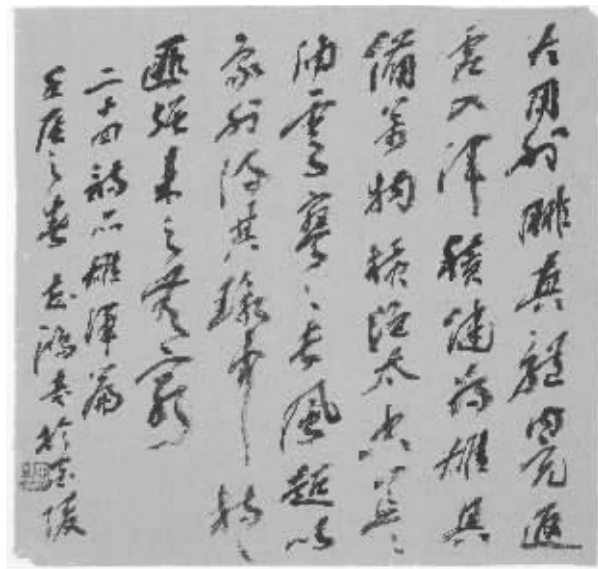 大用外腓真體內充返
虛入渾積健為雄具
備萬物橫絕太空荒〻
油雲寥〻長風超以
象外得其環中持之
匪強来之無窮
二十四詩品雄渾篇
壬辰之春志鴻書於金陵